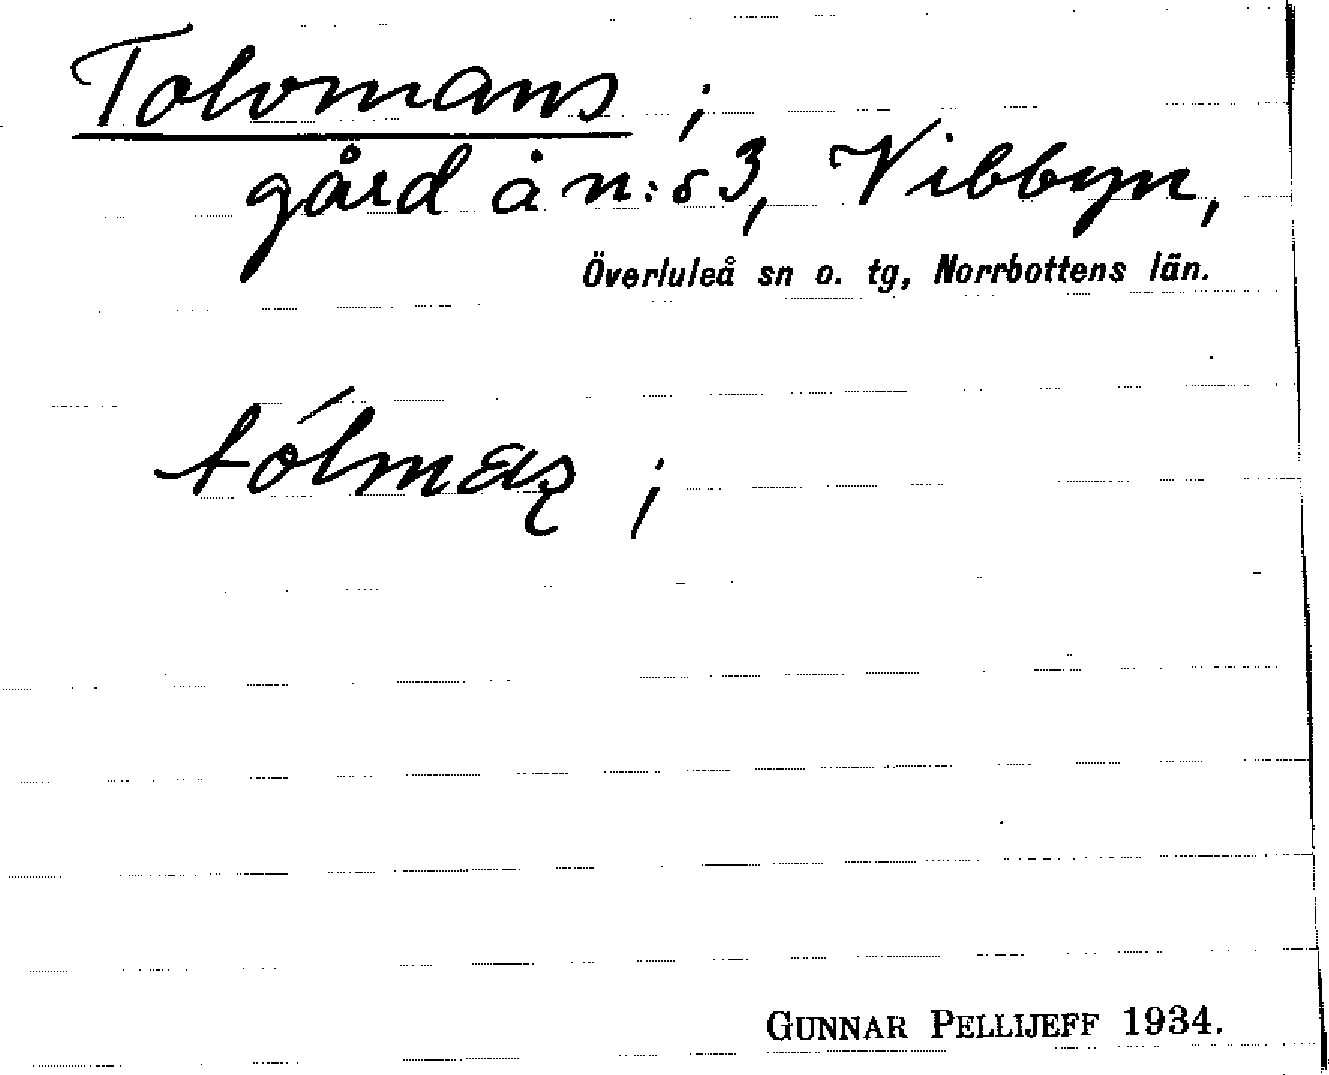 Tolvmans ;
gård å n:o 3, Vibbyn,
Överluleå sn o. tg, Norrbottens län.
tólmaz ;
GUNNAR PELLIJEFF 1934.